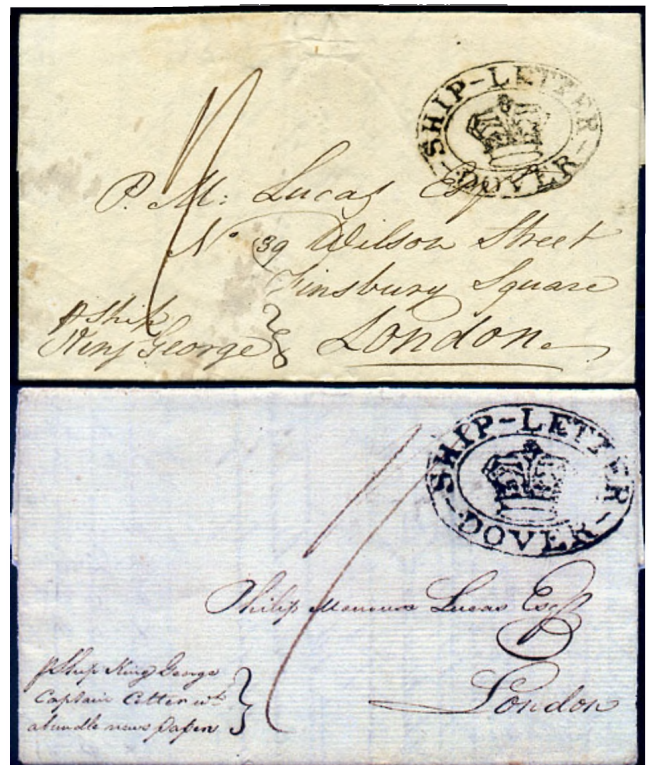 SHIP-LETTER
DOVER
P. M: Lucas Esqr
No 39 Wilson Street
Finsbury Square
London
p Ship
King George
SHIP-LETTER
DOVER
Philip Lucas Esqr
London
p Ship King George
Captain wt
a bundle news Paper